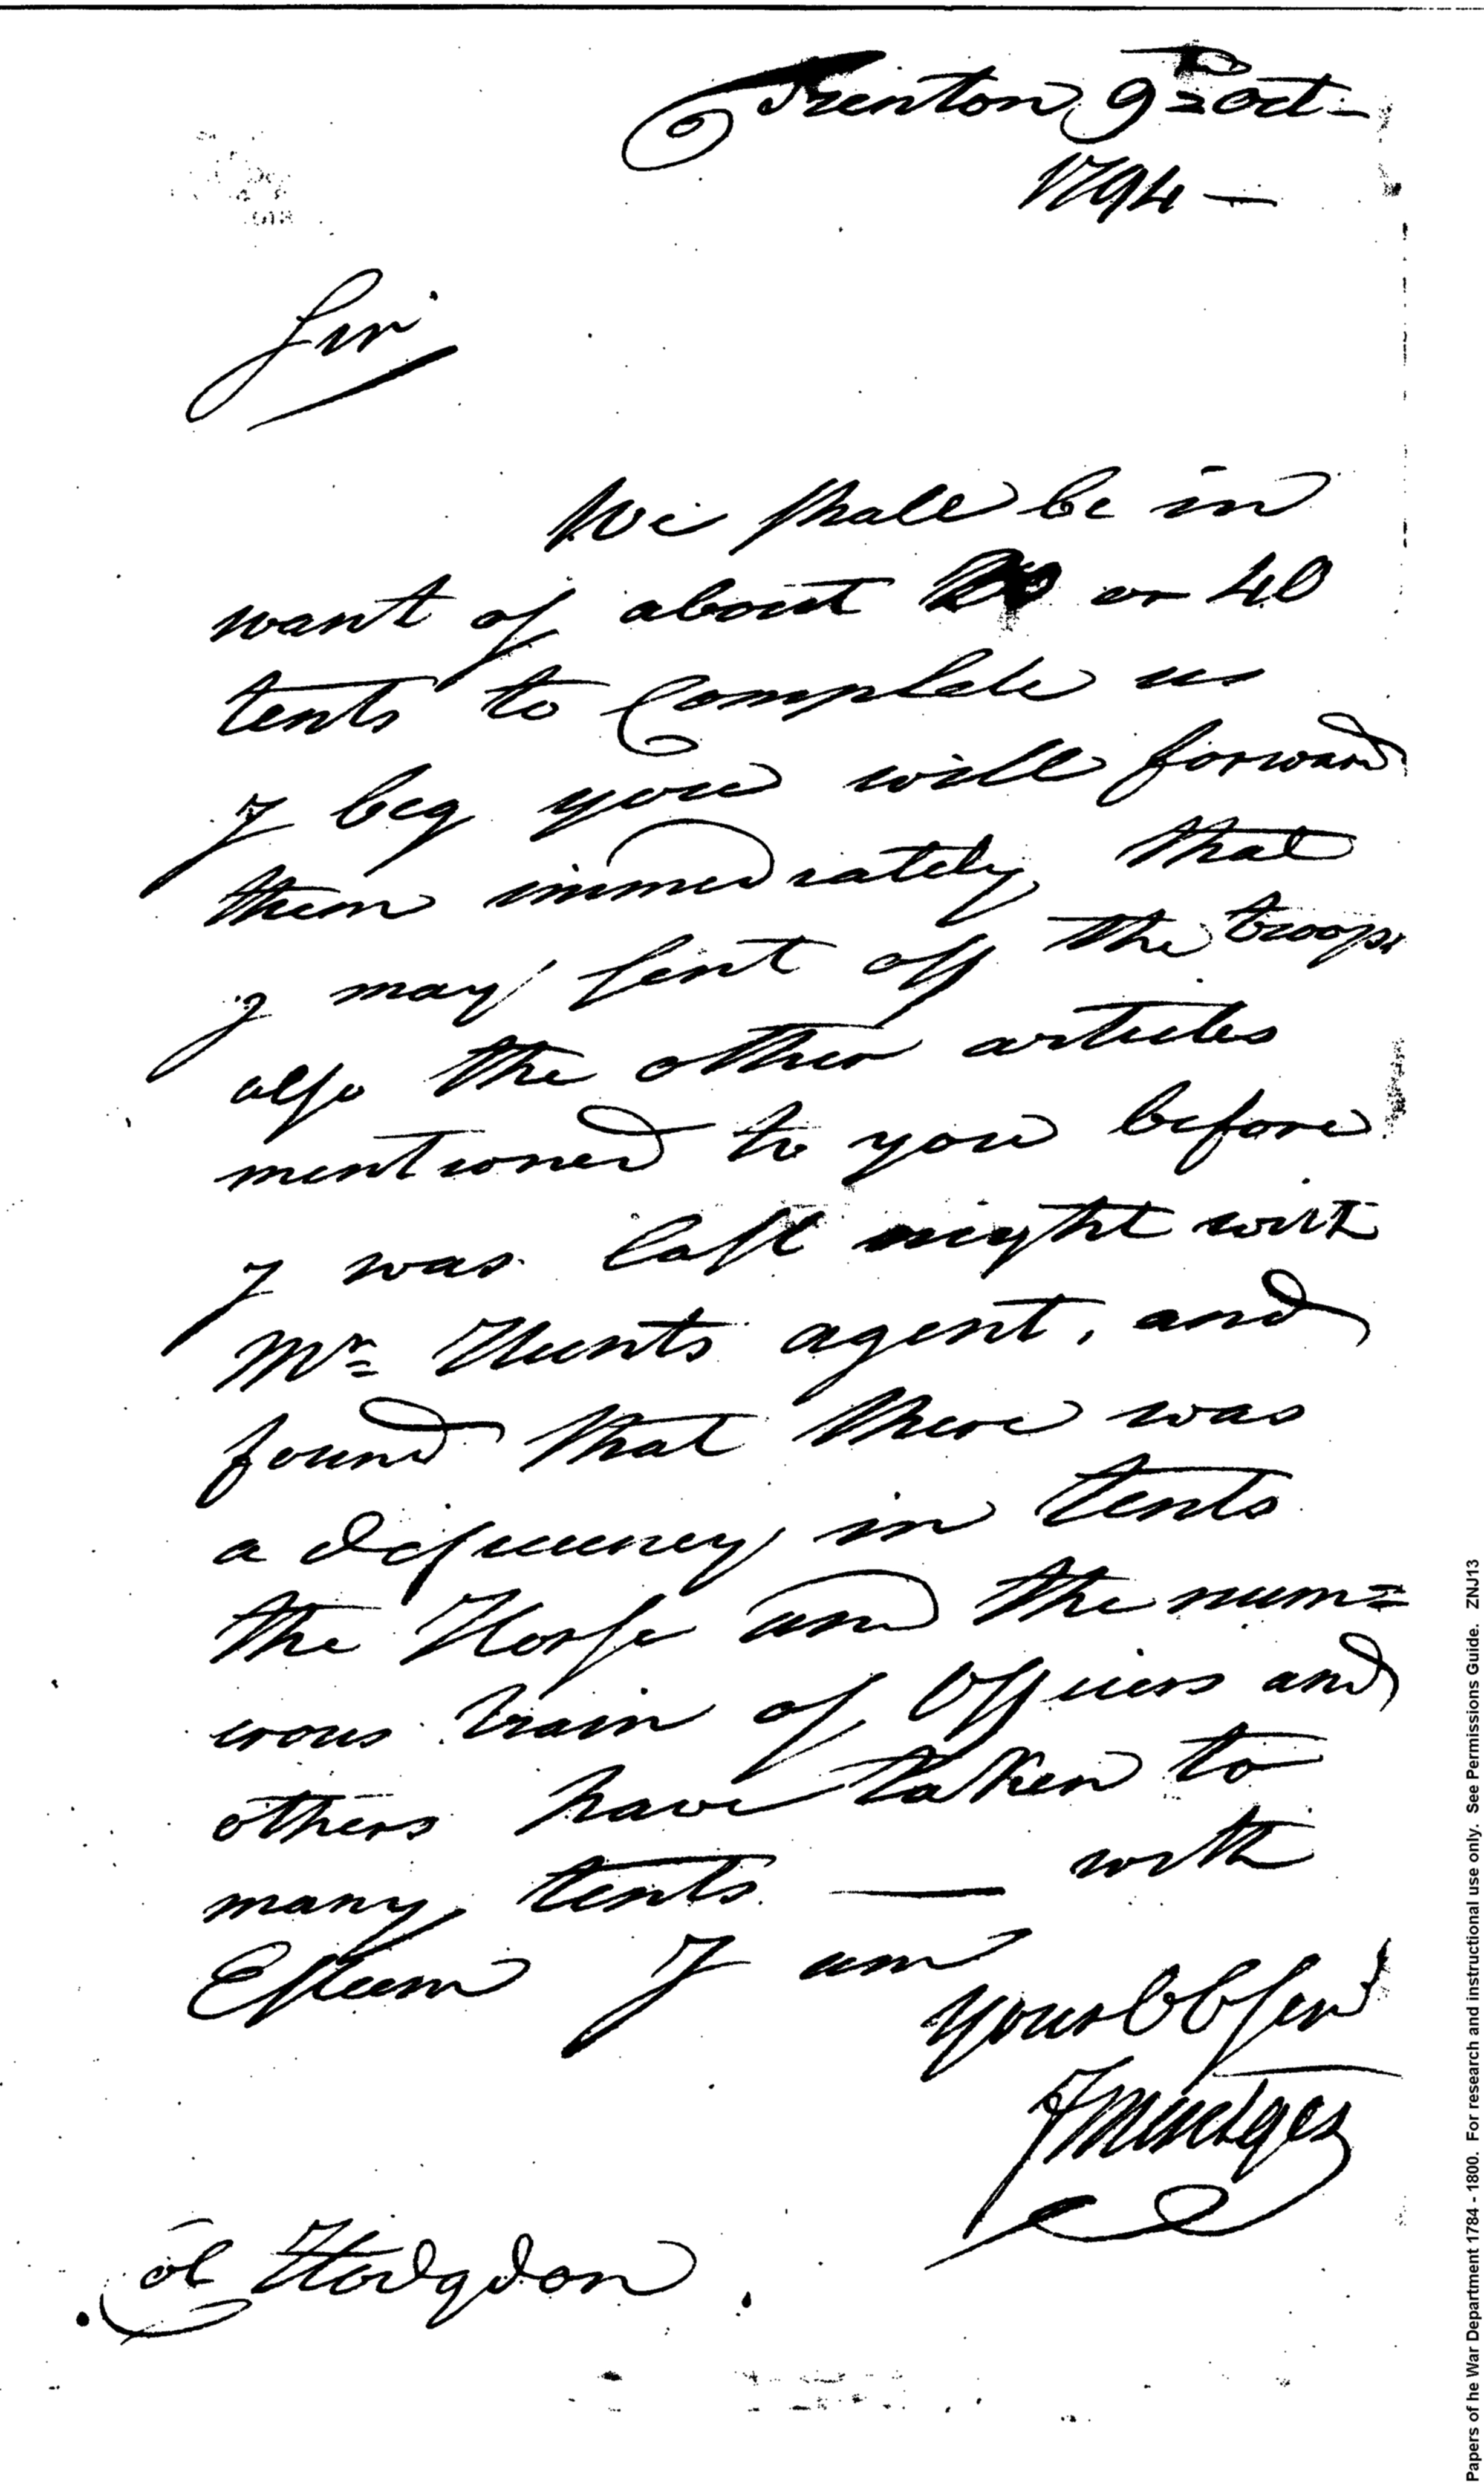 Trenton 9th Oct
1794 —
Sir
We shall be in
want of about or 40
tents to Complete us
I beg you will forward
them immediately that
I may sent off the troops
also the other articles
mentioned to you before
I was last night with
Mr Hunts agent, and
found that there was
a deficiency in tents
the Horse and the num=
erous train of Officers and
others have taken to
many tents — with
Esteem I am
your Ob Serv
F Mentges
Col Hodgdon
Papers of he War Department 1784 - 1800. For research and instructional use only. See Permissions Guide. ZNJ13